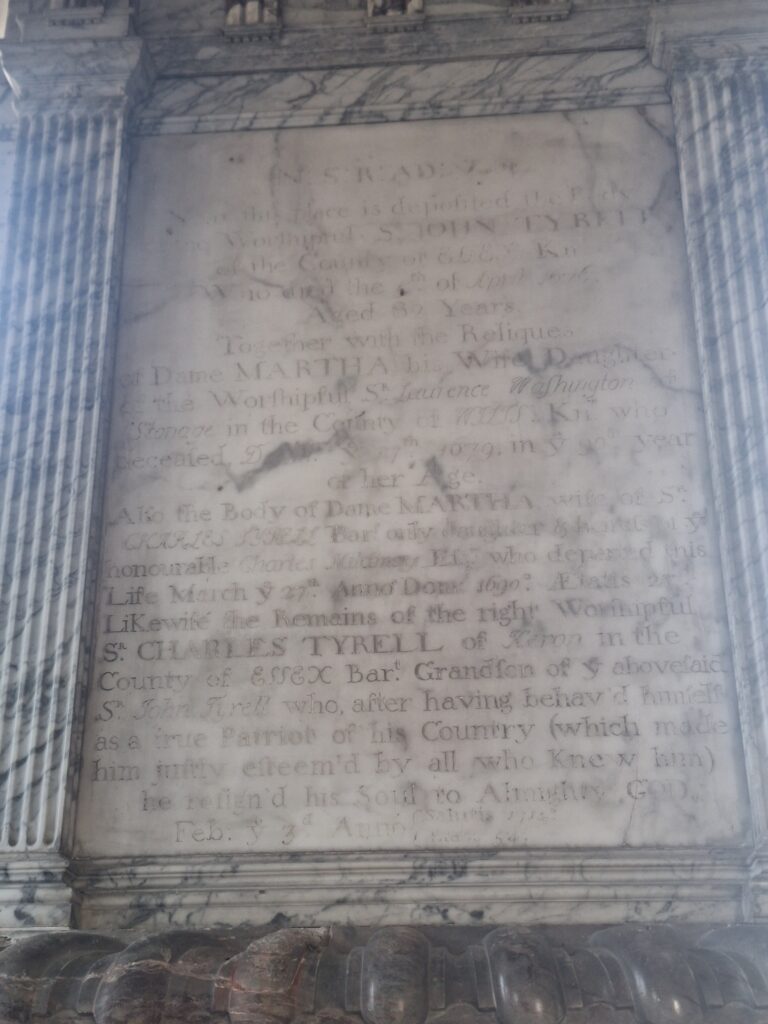 this place is deposited the Body
Worshipful Sʳ. JOHN TYRELL
of the County of ESSEX Kᵗ
Who died the of April
Aged Years
Together with the Reliques
of Dame MARTHA his Wife Daughter
of the Worſhipful Sᴿ. Laurence Waſhington of
in the County of WILTS. Kᵗ. who
deceaſed 17ᵗʰ 1679. in ẏ year
of her Age.
Alſo the Body of Dame MARTHA wife of Sᴿ.
CHARLES TYRELL Barᵗ only daughter of ẏ
honourable Charles Eſqʳ. who departed this
Life March ẏ 27ᵗʰ Anno Domⁱ 1690. Ætatis
LiKewiſe the Remains of the right Worſhipful
Sᴿ. CHARLES TYRELL of Heron in the
County of ESSEX Bar.ᵗ Grandſon of ẏ aboveſaid
Sᴿ. John Tirell who, after having behav'd himſelf
as a true Patriot of his Country (which made
him juſtly eſteem'd by all who Knew him)
he reſign'd his Soul to Almighty GOD.
Feb: ẏ 3ᵈ Anno Salutis